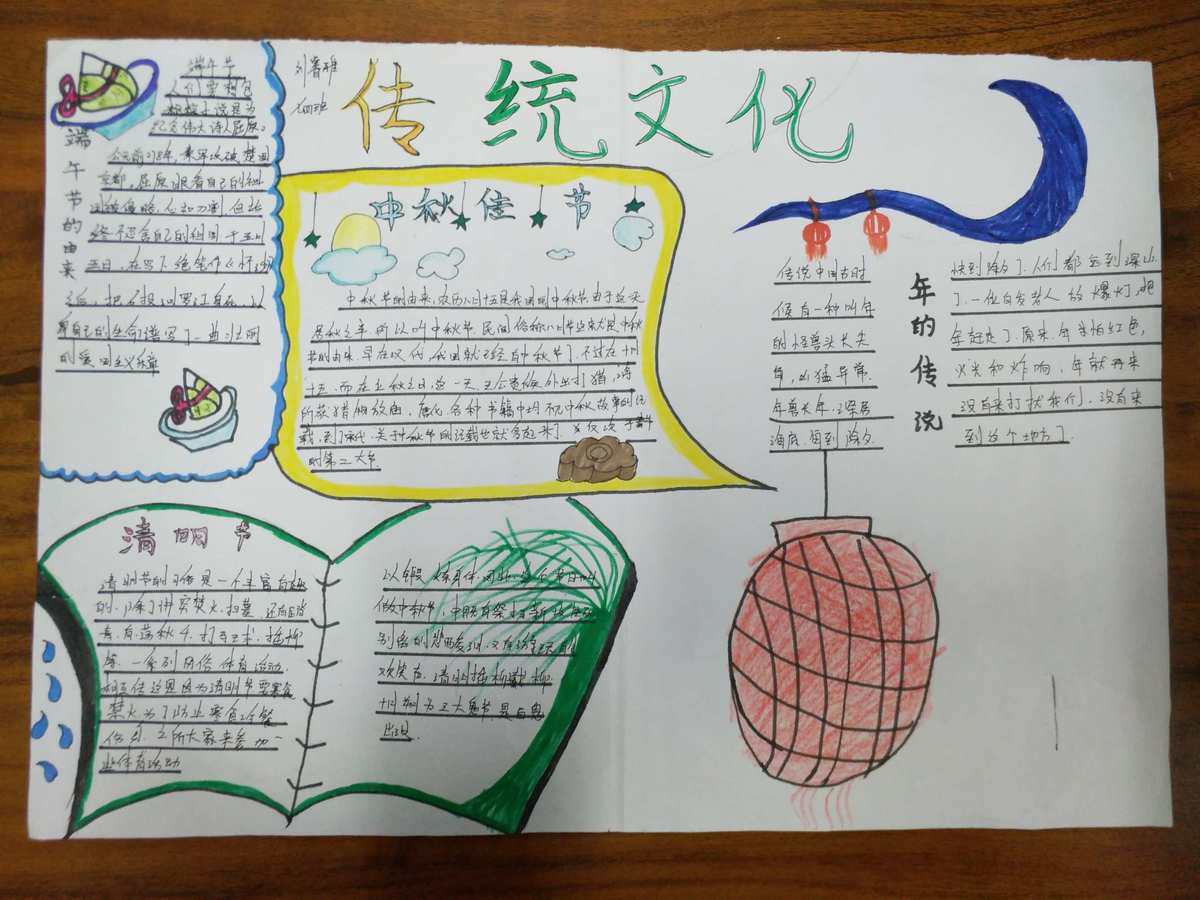 刘睿雅
四班
传统文化
端午节
人们要想包
粽粽子说是为
纪念伟大诗人屈原。
公元前278年，秦军攻破楚国
京都，屈原眼看自己的祖
国被侵略，心如刀割但始
终不忍舍自己的祖国于五月
五日，在写下绝笔作《怀沙》
之后，把石投汨罗江自在，以
身自己的生命谱写了一曲壮丽
的爱国主义乐章
端午节的由来
中秋佳节
中秋节的由来，农历八月十五是我国的中秋节由于这天
居秋之半，所以叫中秋节民间俗称八月节这就是中秋
节的由来。早在汉代，我国就已经有中秋节了，不过在八月
十五，而在立秋之日，这一天王公贵族外出打猎，将
所获猎物放庙，唐代各种书籍中均不见中秋故事的记
载，到了宋代，关于中秋节的记载也就多起来了，仅次于春节
的第二大节
传说中国古时
候有一种叫年
的怪兽头长尖
角，凶猛异常，
年兽长年，深居
海底，每到除夕，
年的传说
快到除夕了，人们都逃到深山
了，一位白发老人放爆灯，把
年赶走了，原来，年害怕红色，
火光和炸响，年就再来
没有来打扰我们，没有来
到这个地方了。
清明节
清明节的习俗是一个丰富有趣
的，除了讲究禁火，扫墓，还有踏
青，有荡秋千，打马球，插柳
等，一系列风俗体育运动，
相互传这里因为清明节要寒食
禁火为了防止寒食冷餐
伤身，之所大家来参加一
些体育活动
以锻炼身体，因此，这个节日叫
做中
别离的悲酸泪，又有踏青玩的
欢笑声，清明插柳戴柳
十月初一为三大鬼节，是百鬼
出没